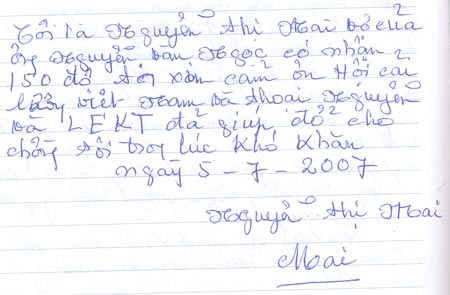 Tôi là Nguyễn thị Mai vở của
ông Nguyễn văn Ngọc có nhận
150 đở tôi xin cảm ơn Hội cai
lậy việt nam và thoai Nguyễn
và LEKT đã giúp đở cho
chồng tôi trog lúc khó khăn
ngày 5-7-2007
Nguyễn thị Mai
Mai